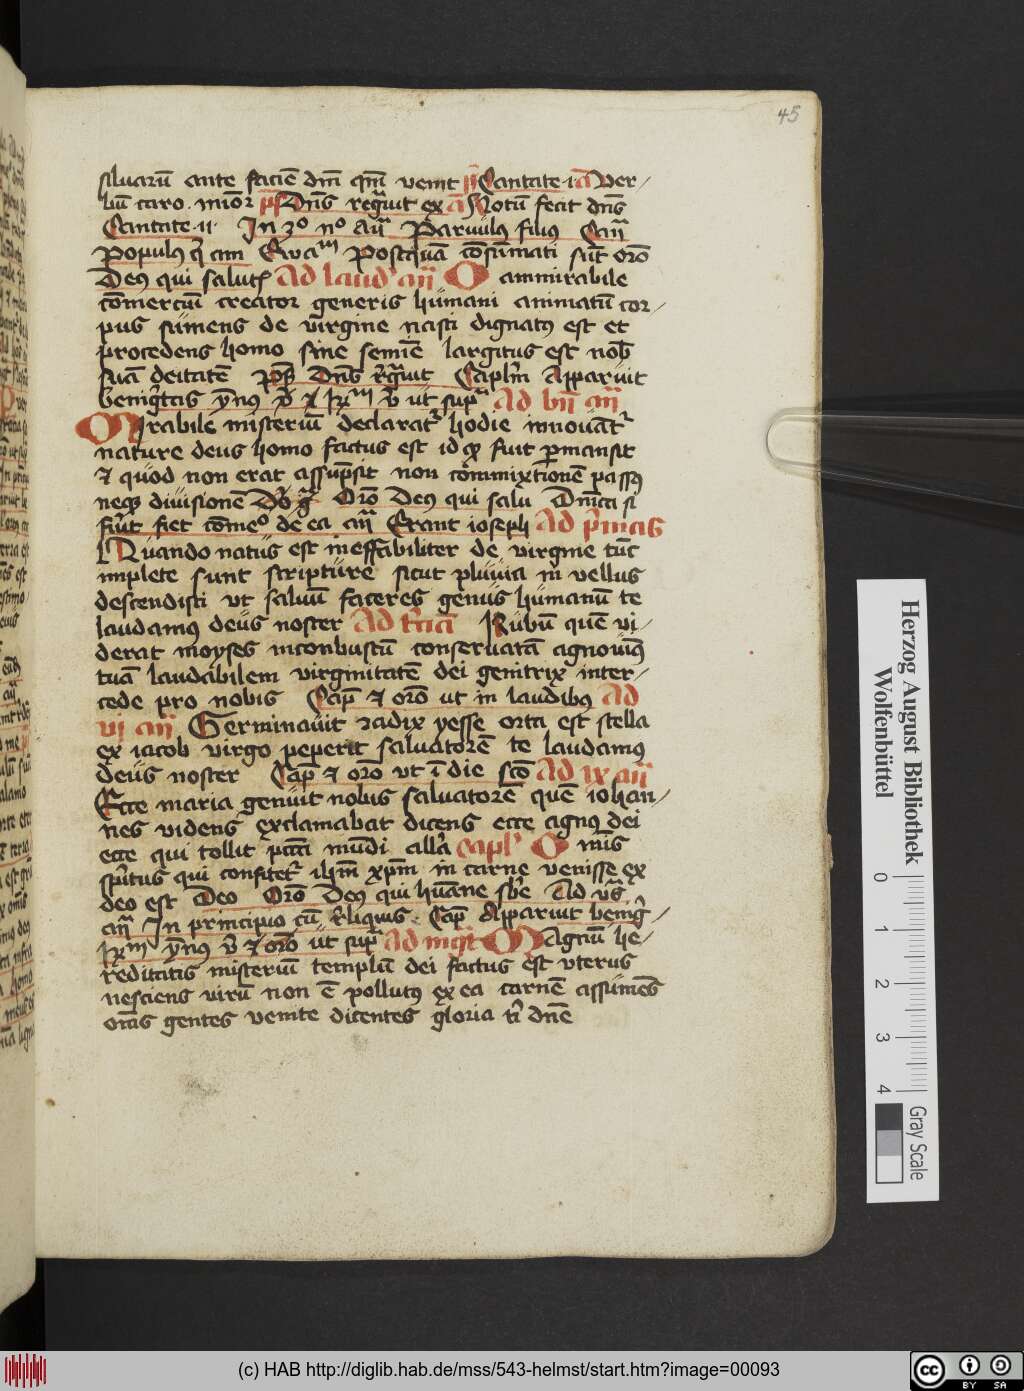 45
siluarū ante faciē dm̄ qm̄ venit p̄s Cantate i a Ver/
bū caro . mīor ps Dn̄s regͣuit ex a Notū fecit dn̄s
Cantate ii In 3º nº an̄ Paruulus filius Can̄
Populus qͥ am Ewaᵐ Postquā cōsūmati sūt orō
Deus qui salutꝭ Ad laudꝭ an̄ O ammirabile
cōmerciū creator generis humani animatū cor/
pus sumens de virgine nasci dignatꝰ est et
procedens homo sine semīe largitus est nob̄
suā deitatē ps̄ Dn̄s rͤgͣuit Caplᷤm Apparuit
benigͥtas ym̄ꝰ v̄ ⁊ kͬᵐ v̄ ut supͣ Ad bn̄ an̄
Mirabile misteriū declaratͬ hodie innouātͬ
nature deus homo factus est id qͦ fuit ꝑmansit
⁊ quod non erat assūpsit non cōmixtionē passꝰ
neqꝫ diuisionē Orō Deus qui salu Dn̄ica si
fiūt fiet cōmeº de ea an̄ Erant ioseph Ad pͥmas
Quando natus est ineffabiliter de virgine tūc
implete sunt scripture sicut pluuia in vellus
descendisti vt saluū faceres genus humanū te
laudamus deus noster Ad tͨciā Rubū quē vi/
derat moyses inconbustū conseruatā agnouimꝰ
tuā laudabilem virginitatē dei genitrix inter/
cede pro nobis Cap̄ ⁊ orō ut in laudibus Ad
vi an̄ Germinauit radix yesse orta est stella
ex iacob virgo peperit saluatorē te laudamꝰ
deus noster Cap̄ ⁊ orō vt ī die scō Ad ix an̄
Ecce maria genuit nobis saluatorē quē iohan/
nes videns exclamabat dicens ecce agnus dei
ecce qui tollit pctā mūdi allͣa caplᷤ O mīs
spͥritus qui confitetͬ ihm̄ xp̄m in carne venisse ex
deo est Deo Orō Deus qui hūane sbͤe Ad vs̄
an̄ In principio cū rͤliquis . Cap̄ Apparuit benigͥ/
kͬᵐ ym̄ꝰ v̄ ⁊ orō ut supͣ Ad mgͭ Magnū he/
reditatis misteriū templū dei factus est vterus
nesciens virū non ē pollutꝰ ex ea carnē assumēs
om̄s gentes venite dicentes gloria tͥ dn̄e
Herzog August Bibliothek
Wolfenbüttel
0 1 2 3 4
Gray Scale
(c) HAB http://diglib.hab.de/mss/543-helmst/start.htm?image=00093
cc BY SA